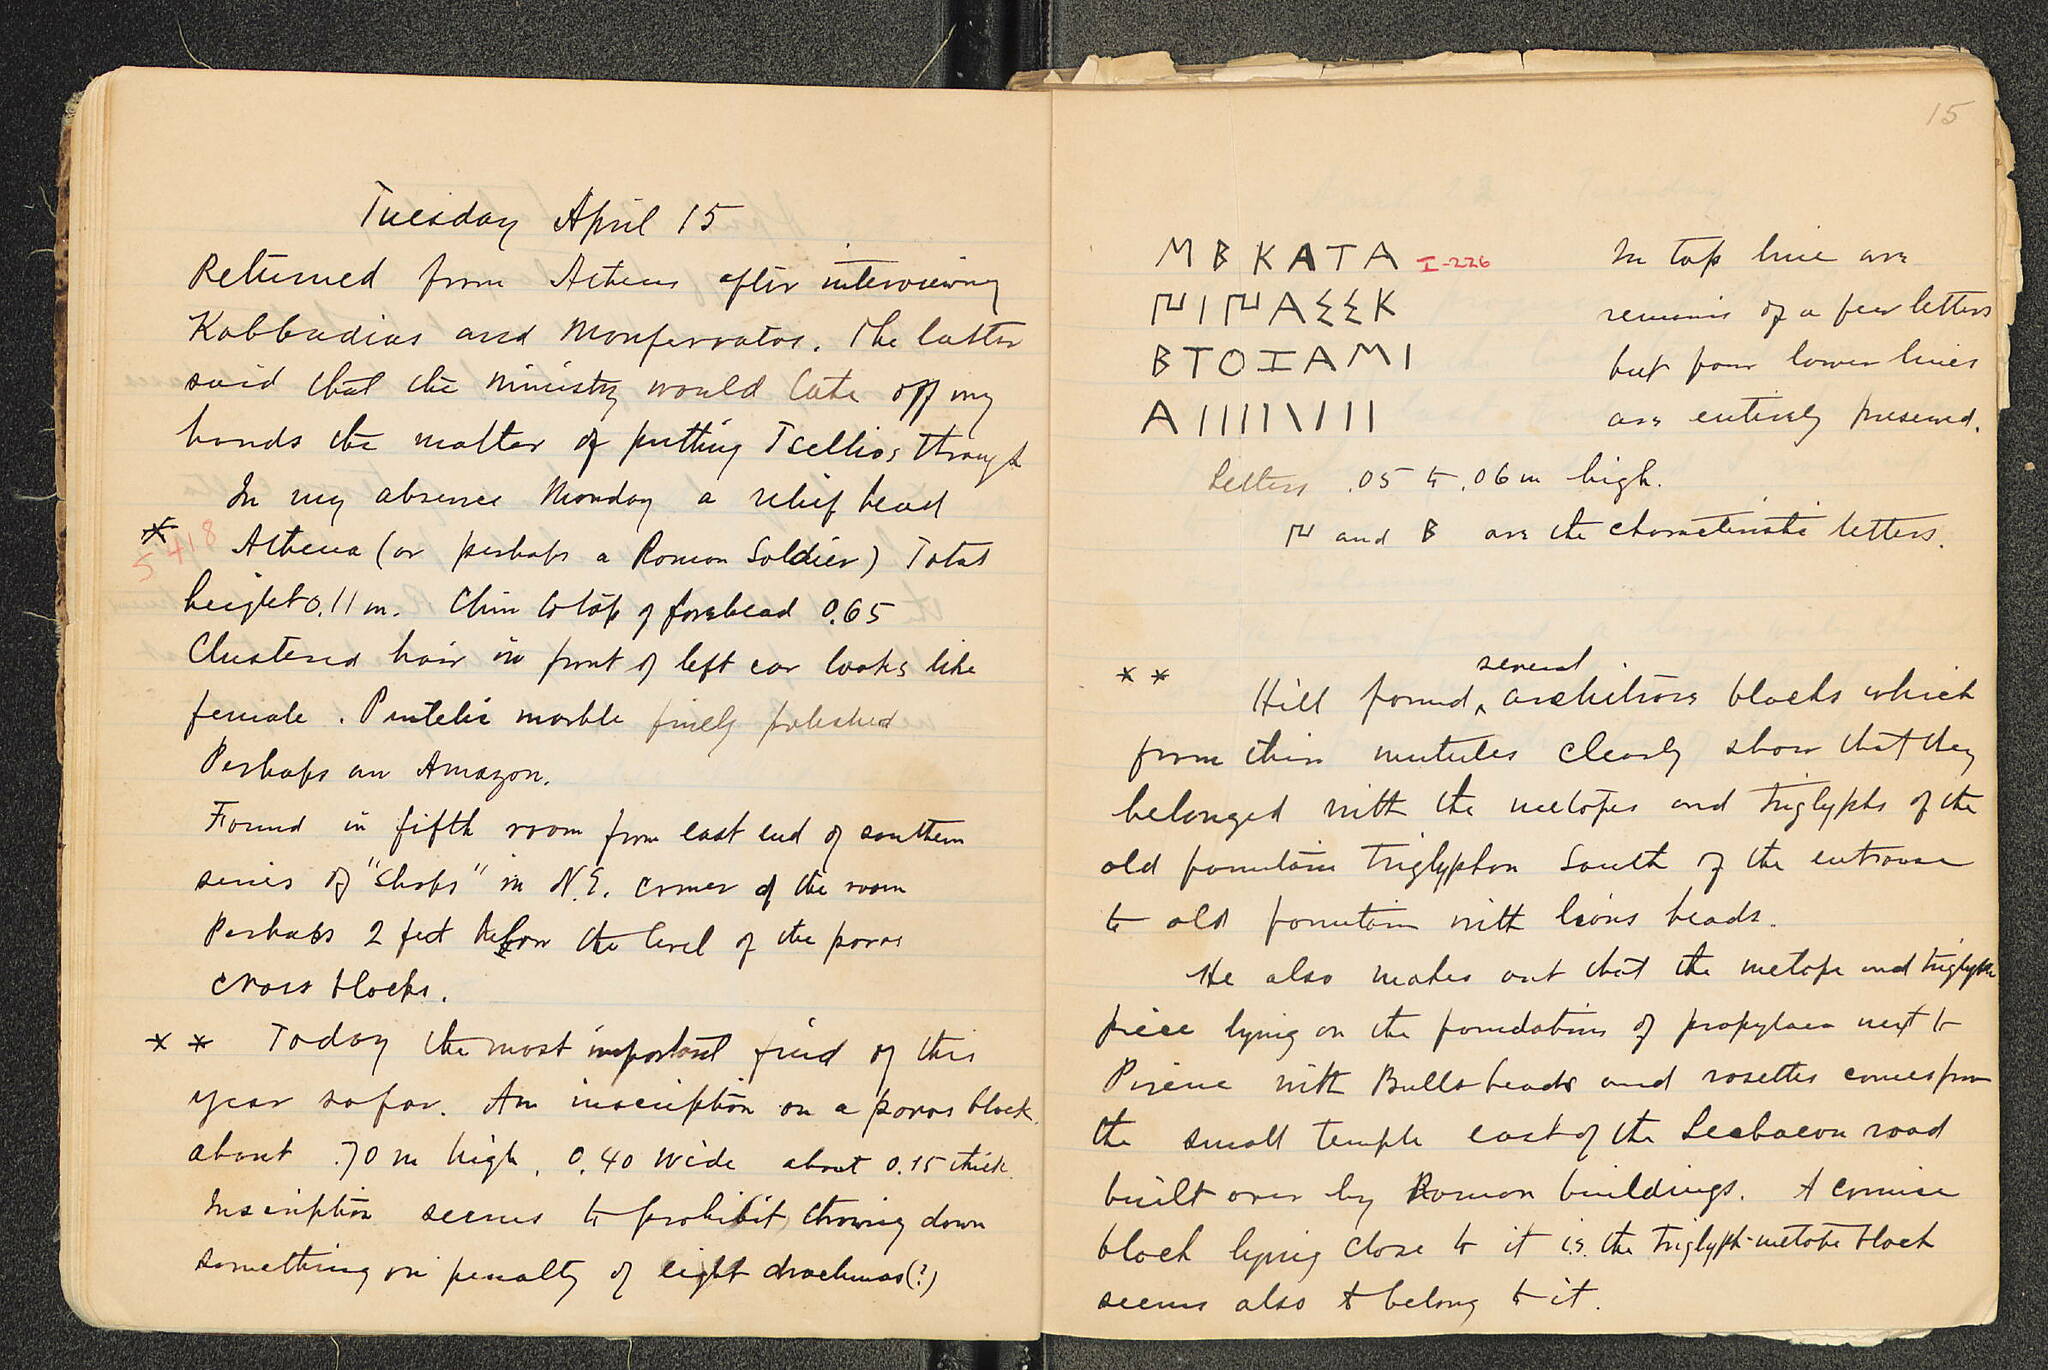 Tuesday April 15
Returned from Athens after interviewing
Kabbadias and Monferratos. The latter
said that the ministry would take off my
hands the matter of putting Tsellios through
In my absence Monday a relief head
* Athena (or perhaps a Roman Soldier) Total
S 418
height 0.11 m. Chin to top of forehead 0.65
Clustered hair in front of left ear looks like
female. Pentelic marble finely polished
Perhaps an Amazon.
Found in fifth room from east end of southern
series of "shops" in N.E. corner of the room
Perhaps 2 feet below the level of the poros
cross blocks.
** Today the most important find of this
year so far. An inscription on a poros block
about .70 m high, 0.40 wide about 0.15 thick.
Inscription seems to prohibit throwing down
something on penalty of eight drachmas (?)
15
Μ Β Κ Α Τ Α I-226
Ι Α Σ Σ Κ
Β Τ Ο Ι Α Μ Ι
Α | | | | \ | | |
In top line are
remains of a few letters
but four lower lines
are entirely preserved.
Letters .05 to .06 m high.
and B are the characteristic letters.
** Hill found ^ several architrave blocks which
from their mutules clearly show that they
belonged with the metopes and triglyphs of the
old fountain triglyphon South of the entrance
to old fountain with lions heads.
He also makes out that the metope and triglyph
piece lying on the foundations of propylaea next to
Pirene with Bulls heads and rosettes comes from
the small temple east of the Lechaeon road
built over by Roman buildings. A cornice
block lying close to it i.e. the triglyph-metope block
seems also to belong to it.